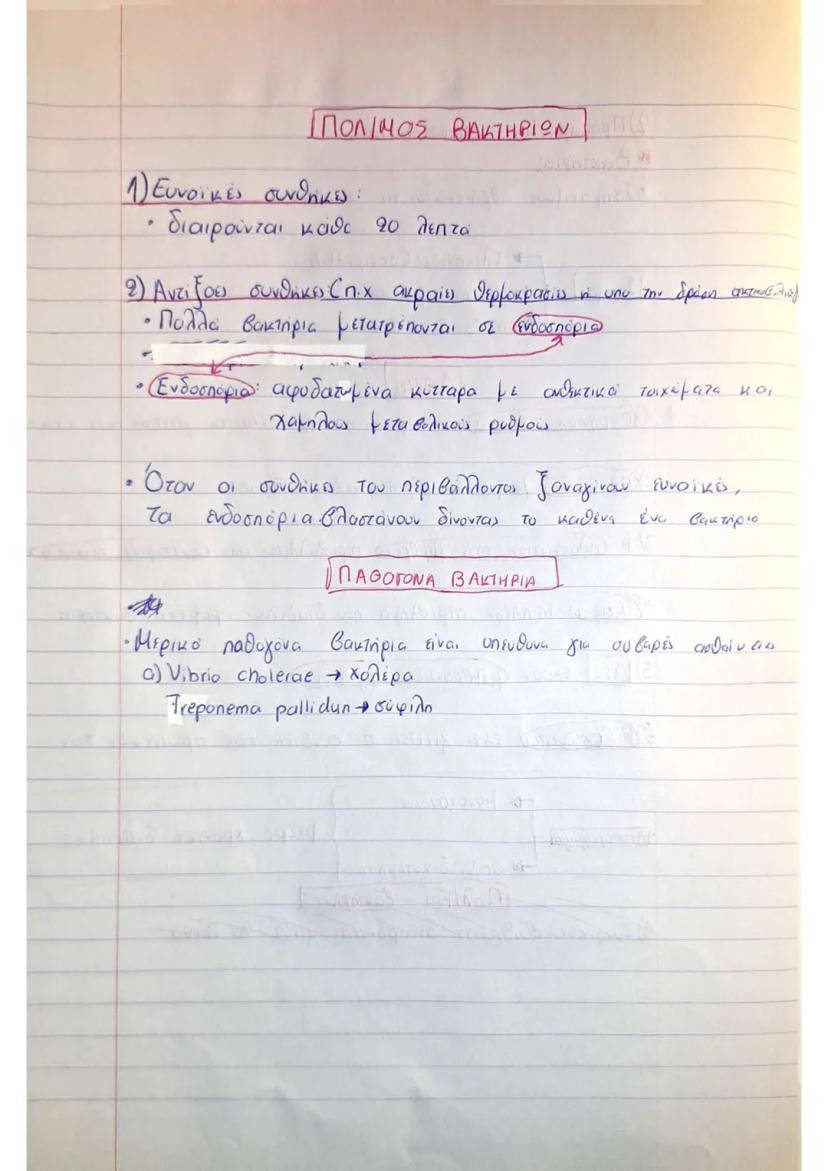 ΠΟΛ/ΜΟΣ ΒΑΚΤΗΡΙΩΝ
1) Ευνοϊκές συνθήκες:
• διαιρούνται κάθε 20 λεπτά
2) Αντίξοες συνθήκες (π.χ ακραίες θερμοκρασίες ή υπό την δράση
• Πολλά βακτήρια μετατρέπονται σε ενδοσπόρια
• Ενδοσπόρια: αφυδατωμένα κύτταρα με ανθεκτικά τοιχώματα και
χαμηλούς μεταβολικούς ρυθμούς
• Όταν οι συνθήκες του περιβάλλοντος ξαναγίνουν ευνοϊκές,
τα ενδοσπόρια βλαστάνουν δίνοντας το καθένα ένα βακτήριο
ΠΑΘΟΓΟΝΑ ΒΑΚΤΗΡΙΑ
• Μερικά παθογόνα βακτήρια είναι υπεύθυνα για σοβαρές ασθένειες
α) Vibrio cholerae → χολέρα
Treponema pallidun → σύφιλη